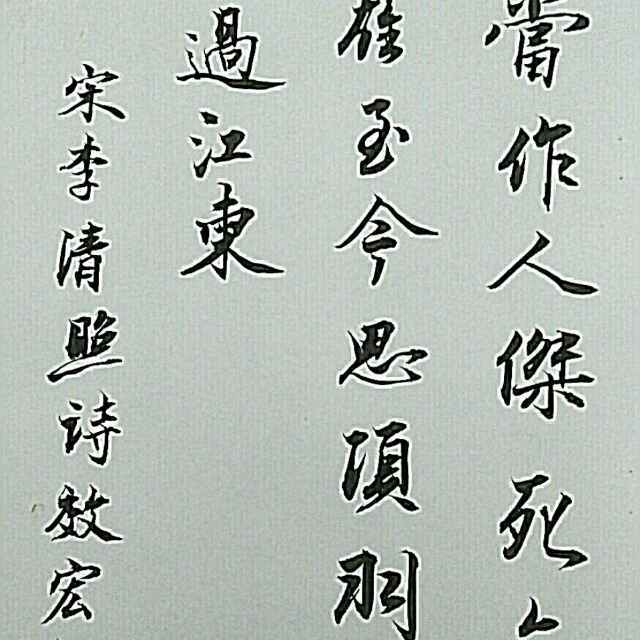 當作人傑死
雄至今思項羽
過江東
宋李清照诗敖宏